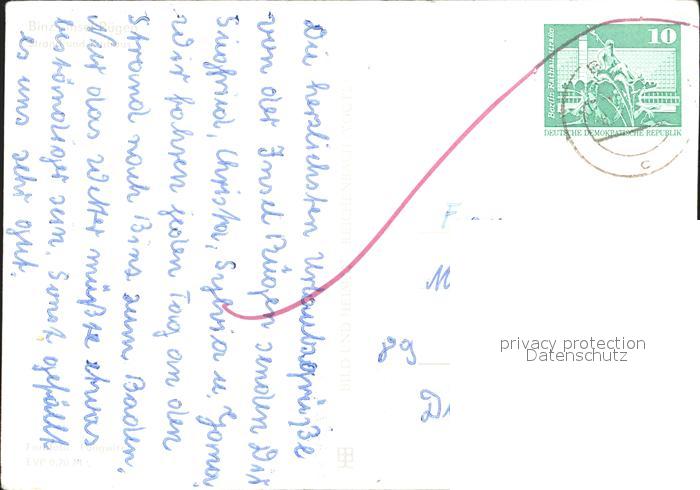 Die herzlichsten Urlaubsgrüße
von der Insel Rügen senden Dir
Siegfrid, Christa, Sylvia u.
Wir fahren jeden Tag an den
Strand nach Binz zum Baden.
Nur das Wetter müßte etwas
beständiger sein. Sonst gefällt
es uns sehr gut.
Binz Insel Rügen
EVP 0,20 M
BILD UND HEIMAT REICHENBACH
10
Berlin, Rathausstraße
DEUTSCHE DEMOKRATISCHE REPUBLIK
c
89
privacy protection
Datenschutz